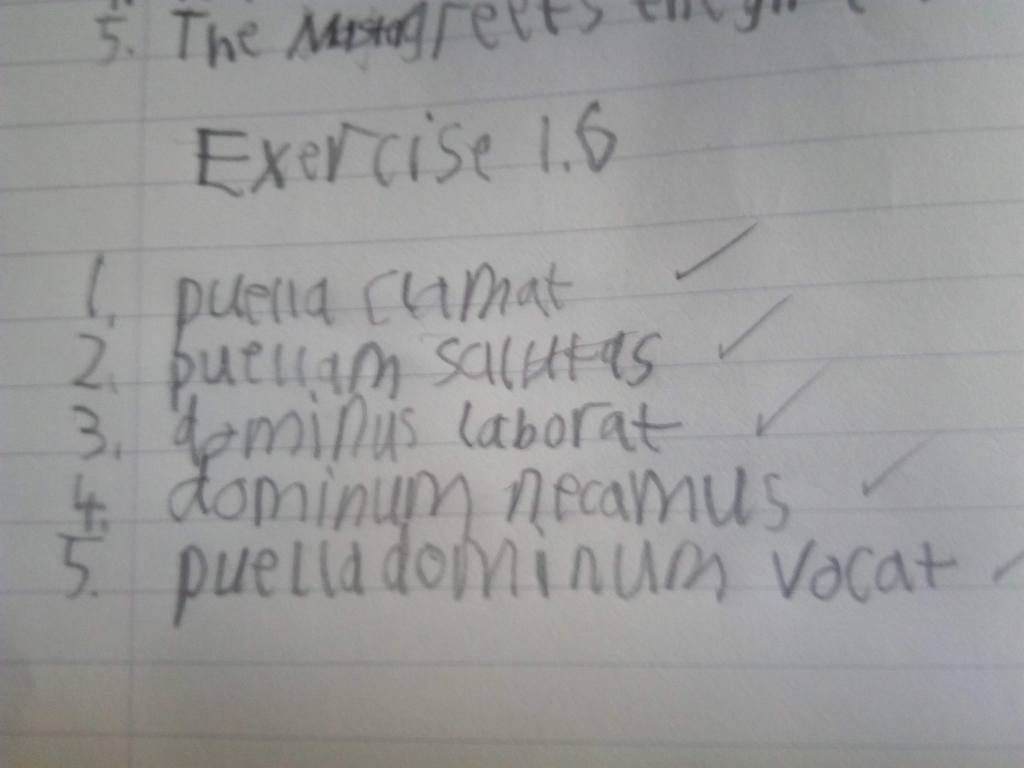 5. The greets the
Exercise 1.6
1. puella clamat
2. puellam salutas
3. dominus laborat
4. dominum necamus
5. puella dominum vocat